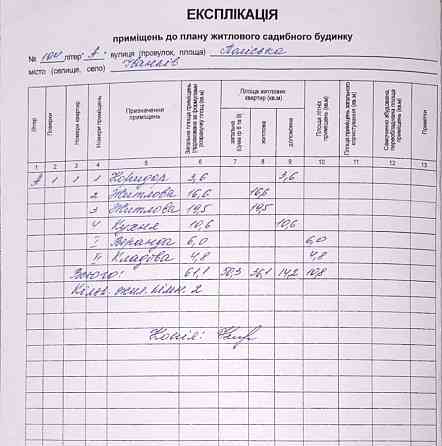 ЕКСПЛІКАЦІЯ
приміщень до плану житлового садибного будинку
№ 104 літер "А" вулиця (провулок, площа) Поліська
місто (селище, село) Іванків
Літер Поверхи Номери квартир Номери приміщень Призначення приміщень Загальна площа приміщень Площа житлових квартир (кв.м) загальна житлова допоміжна Площа літніх приміщень (кв.м) Площа приміщень загального користування (кв.м) Самочинно збудована, переобладнана площа приміщень (кв.м) Примітки
1 2 3 4 5 6 7 8 9 10 11 12 13
А 1 1 1 Коридор 3,6 3,6
2 Житлова 16,6 16,6
3 Житлова 19,5 19,5
4 Кухня 10,6 10,6
I Веранда 6,0 6,0
II Кладова 4,8 4,8
Всього: 61,1 50,3 36,1 14,2 10,8
Кільк. жил. кімн. 2
Копія: